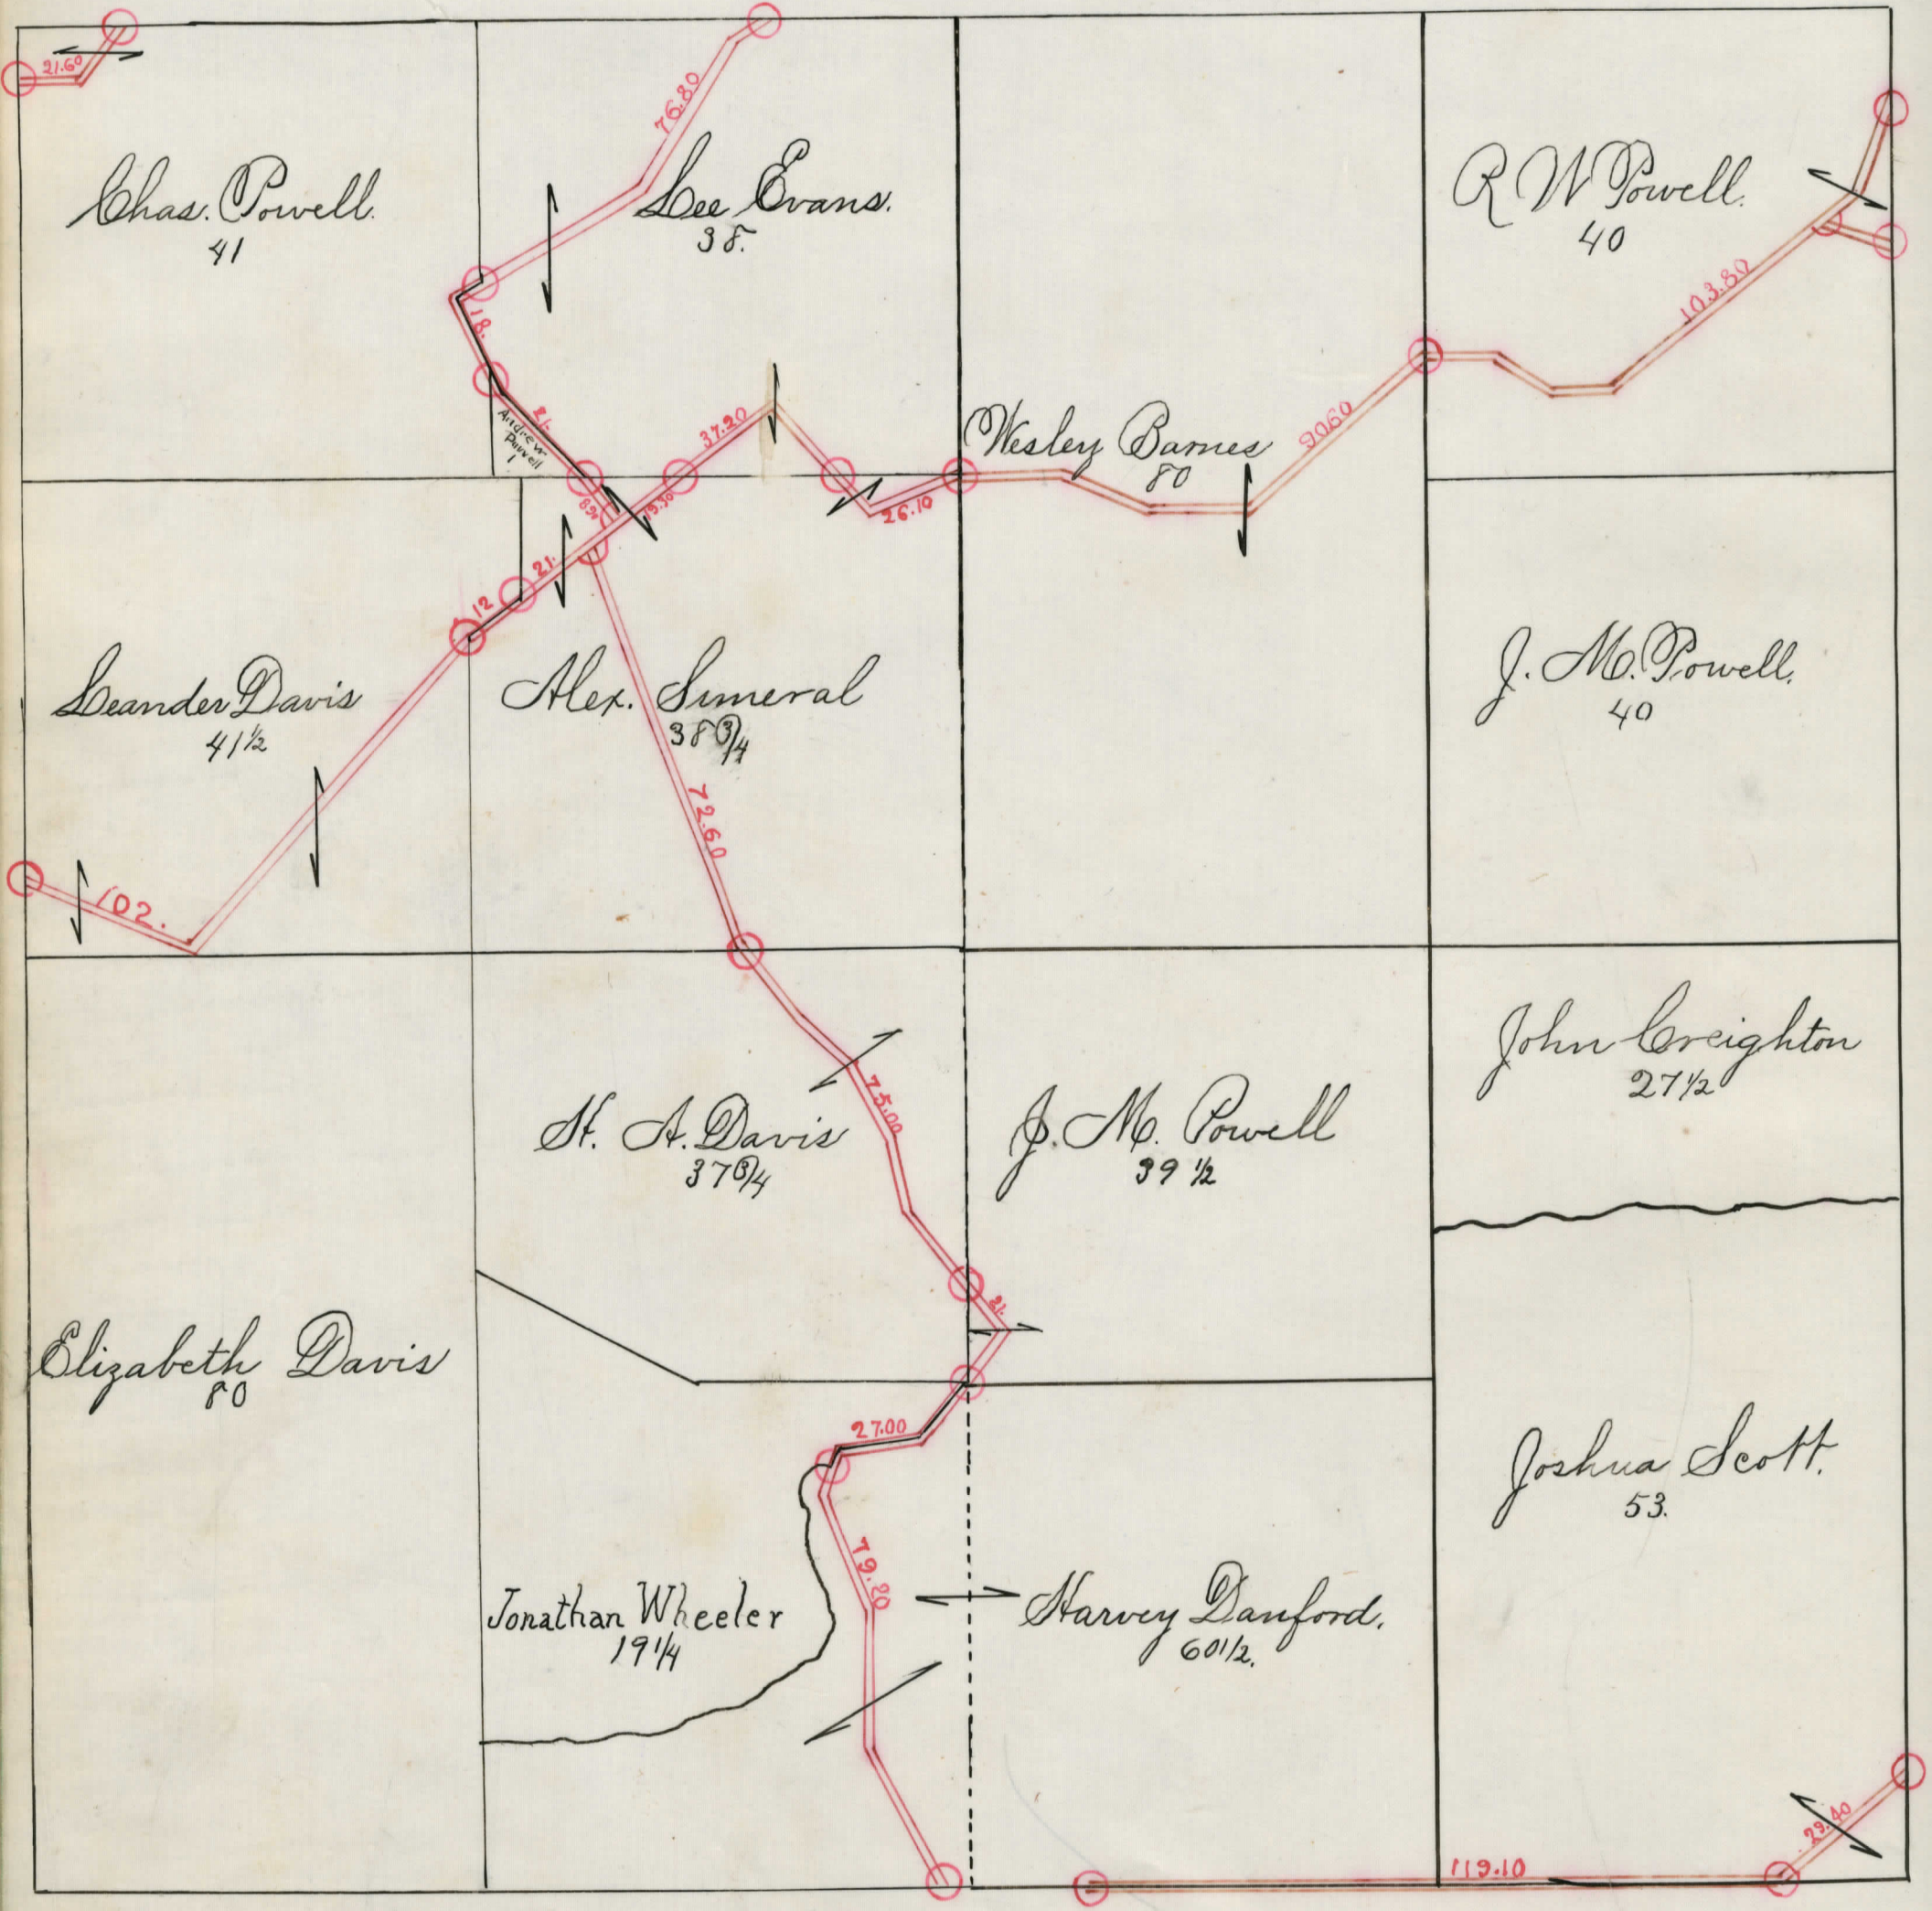 21.60
76.80
Chas. Powell.
41
Lee Evans.
38.
R W Powell.
40
103.80
18.
21.
Andrew
Powell
1
37.20
Wesley Barnes
80
90.60
26.10
19.30
21.
12
Leander Davis
41½
Alex. Simeral
38¾
J. M. Powell.
40
72.60
102.
John Creighton
27½
75.00
H. A. Davis
37¾
J. M. Powell
39 ½
21.
Elizabeth Davis
80
27.00
Joshua Scott.
53.
79.20
Jonathan Wheeler
19¼
Harvey Danford.
60½.
29.40
119.10